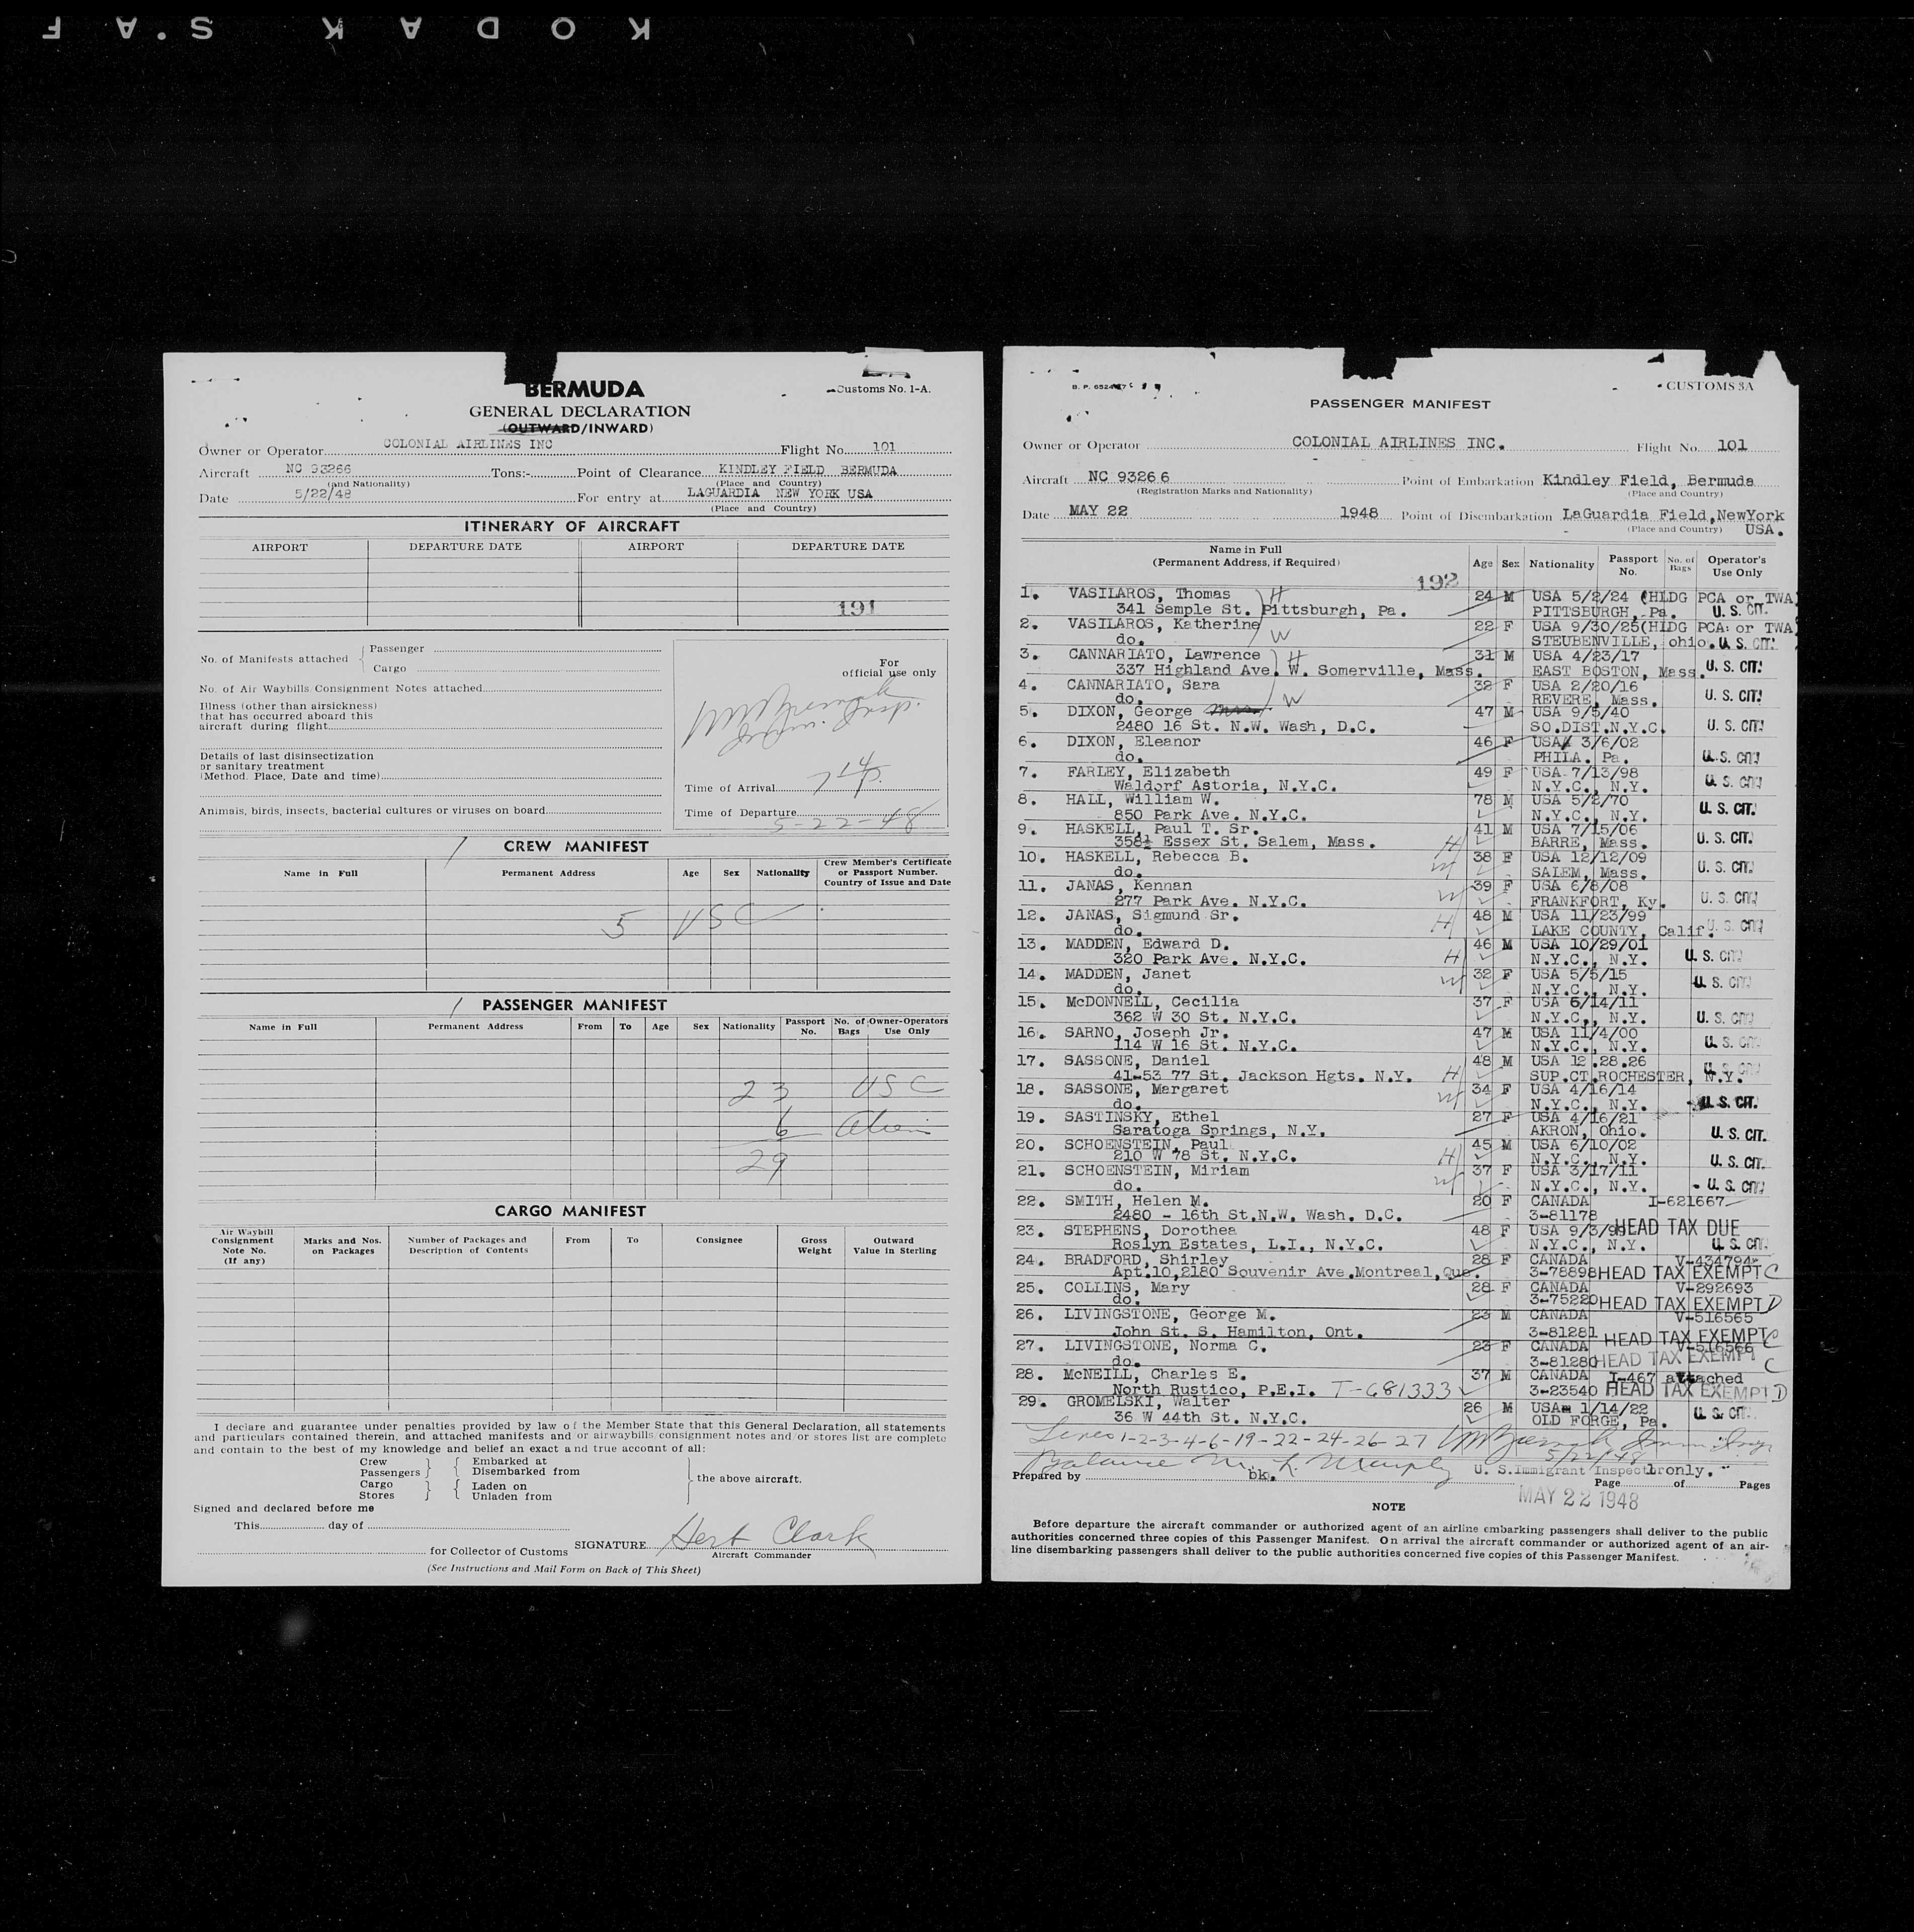 KODAK S.A F
BERMUDA
Customs No. 1-A.
GENERAL DECLARATION
(OUTWARD/INWARD)
Owner or Operator COLONIAL AIRLINES INC Flight No. 101
Aircraft NC 93266 Tons:- Point of Clearance KINDLEY FIELD BERMUDA
(and Nationality) (Place and Country)
Date 5/22/48 For entry at LAGUARDIA NEW YORK USA
(Place and Country)
ITINERARY OF AIRCRAFT
AIRPORT DEPARTURE DATE AIRPORT DEPARTURE DATE
191
No. of Manifests attached { Passenger
Cargo
For
official use only
No. of Air Waybills Consignment Notes attached
Illness (other than airsickness)
that has occurred aboard this
aircraft during flight
Details of last disinsectization
or sanitary treatment
(Method. Place, Date and time)
Time of Arrival
Animals, birds, insects, bacterial cultures or viruses on board
Time of Departure
5-22-48
CREW MANIFEST
Name in Full Permanent Address Age Sex Nationality Crew Member's Certificate
or Passport Number.
Country of Issue and Date
5 USC
PASSENGER MANIFEST
Name in Full Permanent Address From To Age Sex Nationality Passport No. No. of Bags Owner-Operators Use Only
23 USC
6 Alien
29
CARGO MANIFEST
Air Waybill Consignment Note No. (If any) Marks and Nos. on Packages Number of Packages and Description of Contents From To Consignee Gross Weight Outward Value in Sterling
I declare and guarantee under penalties provided by law of the Member State that this General Declaration, all statements
and particulars contained therein, and attached manifests and or airwaybills/consignment notes and/or stores list are complete
and contain to the best of my knowledge and belief an exact and true account of all:
Crew Embarked at
Passengers Disembarked from
Cargo Laden on
Stores Unladen from
the above aircraft.
Signed and declared before me
This day of
for Collector of Customs SIGNATURE Herb Clark
Aircraft Commander
(See Instructions and Mail Form on Back of This Sheet)
CUSTOMS 3A
PASSENGER MANIFEST
Owner or Operator COLONIAL AIRLINES INC. Flight No. 101
Aircraft NC 93266 Point of Embarkation Kindley Field, Bermuda
(Registration Marks and Nationality) (Place and Country)
Date MAY 22 1948 Point of Disembarkation LaGuardia Field, NewYork
(Place and Country) USA.
Name in Full
(Permanent Address, if Required) Age Sex Nationality Passport No. No. of Bags Operator's Use Only
192
1. VASILAROS, Thomas H 24 M USA 5/2/24 (HLDG PCA or TWA)
341 Semple St. Pittsburgh, Pa. PITTSBURGH, Pa. U. S. CIT.
2. VASILAROS, Katherine 22 F USA 9/30/25(HLDG PCA or TWA)
do. W STEUBENVILLE, ohio. U. S. CIT.
3. CANNARIATO, Lawrence H 31 M USA 4/23/17
337 Highland Ave. W. Somerville, Mass. EAST BOSTON, Mass. U. S. CIT.
4. CANNARIATO, Sara 32 F USA 2/20/16
do. W REVERE, Mass. U. S. CIT.
5. DIXON, George 47 M USA 9/5/40
2480 16 St. N.W. Wash, D.C. SO.DIST.N.Y.C. U. S. CIT.
6. DIXON, Eleanor 46 F USA 3/6/02
do. PHILA. Pa. U. S. CIT.
7. FARLEY, Elizabeth 49 F USA 7/13/98
Waldorf Astoria, N.Y.C. N.Y.C., N.Y. U. S. CIT.
8. HALL, William W. 78 M USA 5/2/70
850 Park Ave. N.Y.C. N.Y.C., N.Y. U. S. CIT.
9. HASKELL, Paul T. Sr. 41 M USA 7/15/06
358½ Essex St. Salem, Mass. H BARRE, Mass. U. S. CIT.
10. HASKELL, Rebecca B. 38 F USA 12/12/09
do. W SALEM, Mass. U. S. CIT.
11. JANAS, Kennan W 39 F USA 6/8/08
277 Park Ave. N.Y.C. FRANKFORT, Ky. U. S. CIT.
12. JANAS, Sigmund Sr. 48 M USA 11/23/99
do. H LAKE COUNTY, Calif. U. S. CIT.
13. MADDEN, Edward D. 46 M USA 10/29/01
320 Park Ave. N.Y.C. H N.Y.C., N.Y. U. S. CIT.
14. MADDEN, Janet 32 F USA 5/5/15
do. W N.Y.C., N.Y. U. S. CIT.
15. McDONNELL, Cecilia 37 F USA 6/14/11
362 W 30 St. N.Y.C. N.Y.C., N.Y. U. S. CIT.
16. SARNO, Joseph Jr. 47 M USA 11/4/00
114 W 16 St. N.Y.C. N.Y.C., N.Y. U. S. CIT.
17. SASSONE, Daniel 48 M USA 12.28.26
41-53 77 St. Jackson Hgts. N.Y. H SUP.CT.ROCHESTER, N.Y. U. S. CIT.
18. SASSONE, Margaret 34 F USA 4/16/14
do. W N.Y.C., N.Y. U. S. CIT.
19. SASTINSKY, Ethel 27 F USA 4/16/21
Saratoga Springs, N.Y. AKRON, Ohio. U. S. CIT.
20. SCHOENSTEIN, Paul 45 M USA 6/10/02
210 W 78 St. N.Y.C. H N.Y.C., N.Y. U. S. CIT.
21. SCHOENSTEIN, Miriam 37 F USA 3/17/11
do. W N.Y.C., N.Y. U. S. CIT.
22. SMITH, Helen M. 20 F CANADA I-621667
2480 - 16th St,N.W. Wash. D.C. 3-81178 HEAD TAX DUE
23. STEPHENS, Dorothea 48 F USA 9/3/99
Roslyn Estates, L.I., N.Y.C. N.Y.C., N.Y. U. S. CIT.
24. BRADFORD, Shirley 28 F CANADA V-434794
Apt.10,2180 Souvenir Ave.Montreal,Que. 3-78898 HEAD TAX EXEMPT C
25. COLLINS, Mary 28 F CANADA V-292693
do. 3-75220 HEAD TAX EXEMPT D
26. LIVINGSTONE, George M. 23 M CANADA V-516565
John St. S. Hamilton, Ont. 3-81281 HEAD TAX EXEMPT C
27. LIVINGSTONE, Norma C. 23 F CANADA V-516566
do. 3-81280 HEAD TAX EXEMPT C
28. McNEILL, Charles E. 37 M CANADA I-467 attached
North Rustico, P.E.I. T-681333 3-23540 HEAD TAX EXEMPT D
29. GROMELSKI, Walter 26 M USA 1/14/22
36 W 44th St. N.Y.C. OLD FORGE, Pa. U. S. CIT.
Lines 1-2-3-4-6-19-22-24-26-27
5/22/48
Balance M. L. Murphy
Prepared by bk. U. S. Immigrant Inspector only.
Page of Pages
MAY 22 1948
NOTE
Before departure the aircraft commander or authorized agent of an airline embarking passengers shall deliver to the public
authorities concerned three copies of this Passenger Manifest. On arrival the aircraft commander or authorized agent of an air-
line disembarking passengers shall deliver to the public authorities concerned five copies of this Passenger Manifest.